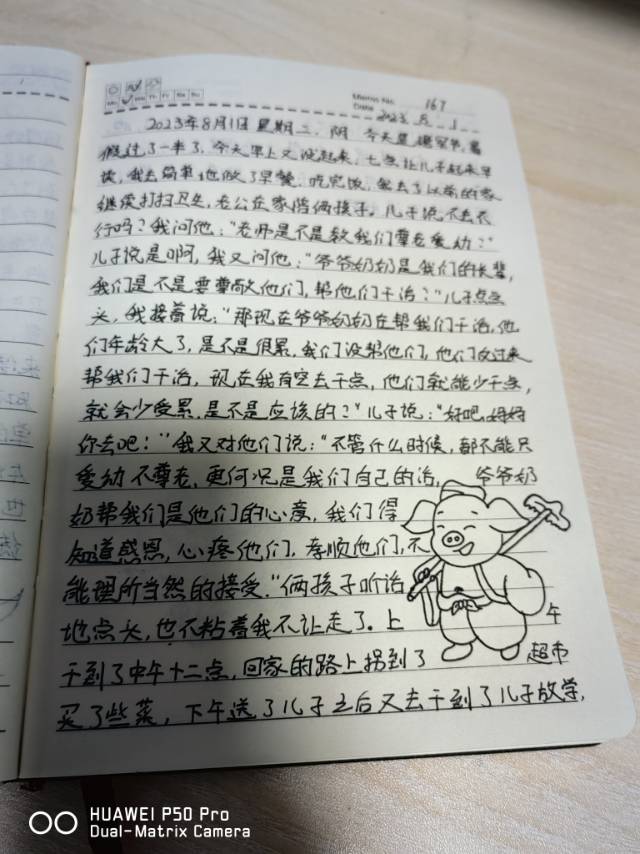 Mo Tu We Th Fr Sa Su
Memo No. 167
Date 2023. 8. 1
2023年8月1日 星期二，阴 今天是建军节，暑
假过了一半了，今天早上又没起来，七点让儿子起来早
读，我去简单地做了早餐，吃完饭，我去了以前的家
继续打扫卫生，老公在家陪俩孩子。儿子说不去不
行吗？我问他："老师是不是教我们尊老爱幼？"
儿子说是啊，我又问他："爷爷奶奶是我们的长辈，
我们是不是要尊敬他们，帮他们干活？"儿子点点
头，我接着说："那现在爷爷奶奶在帮我们干活，他
们年龄大了，是不是很累，我们没帮他们，他们反过来
帮我们干活，现在我有空去干点，他们就能少干点，
就会少受累，是不是应该的？"儿子说："好吧，妈妈
你去吧！"我又对他们说："不管什么时候，都不能只
爱幼不尊老，更何况是我们自己的活，爷爷奶
奶帮我们是他们的心意，我们得
知道感恩，心疼他们，孝顺他们，不
能理所当然的接受。"俩孩子听话
地点头，也不粘着我不让走了。上午
干到了中午十二点，回家的路上拐到了超市
买了些菜，下午送了儿子之后又去干到了儿子放学，
HUAWEI P50 Pro
Dual-Matrix Camera